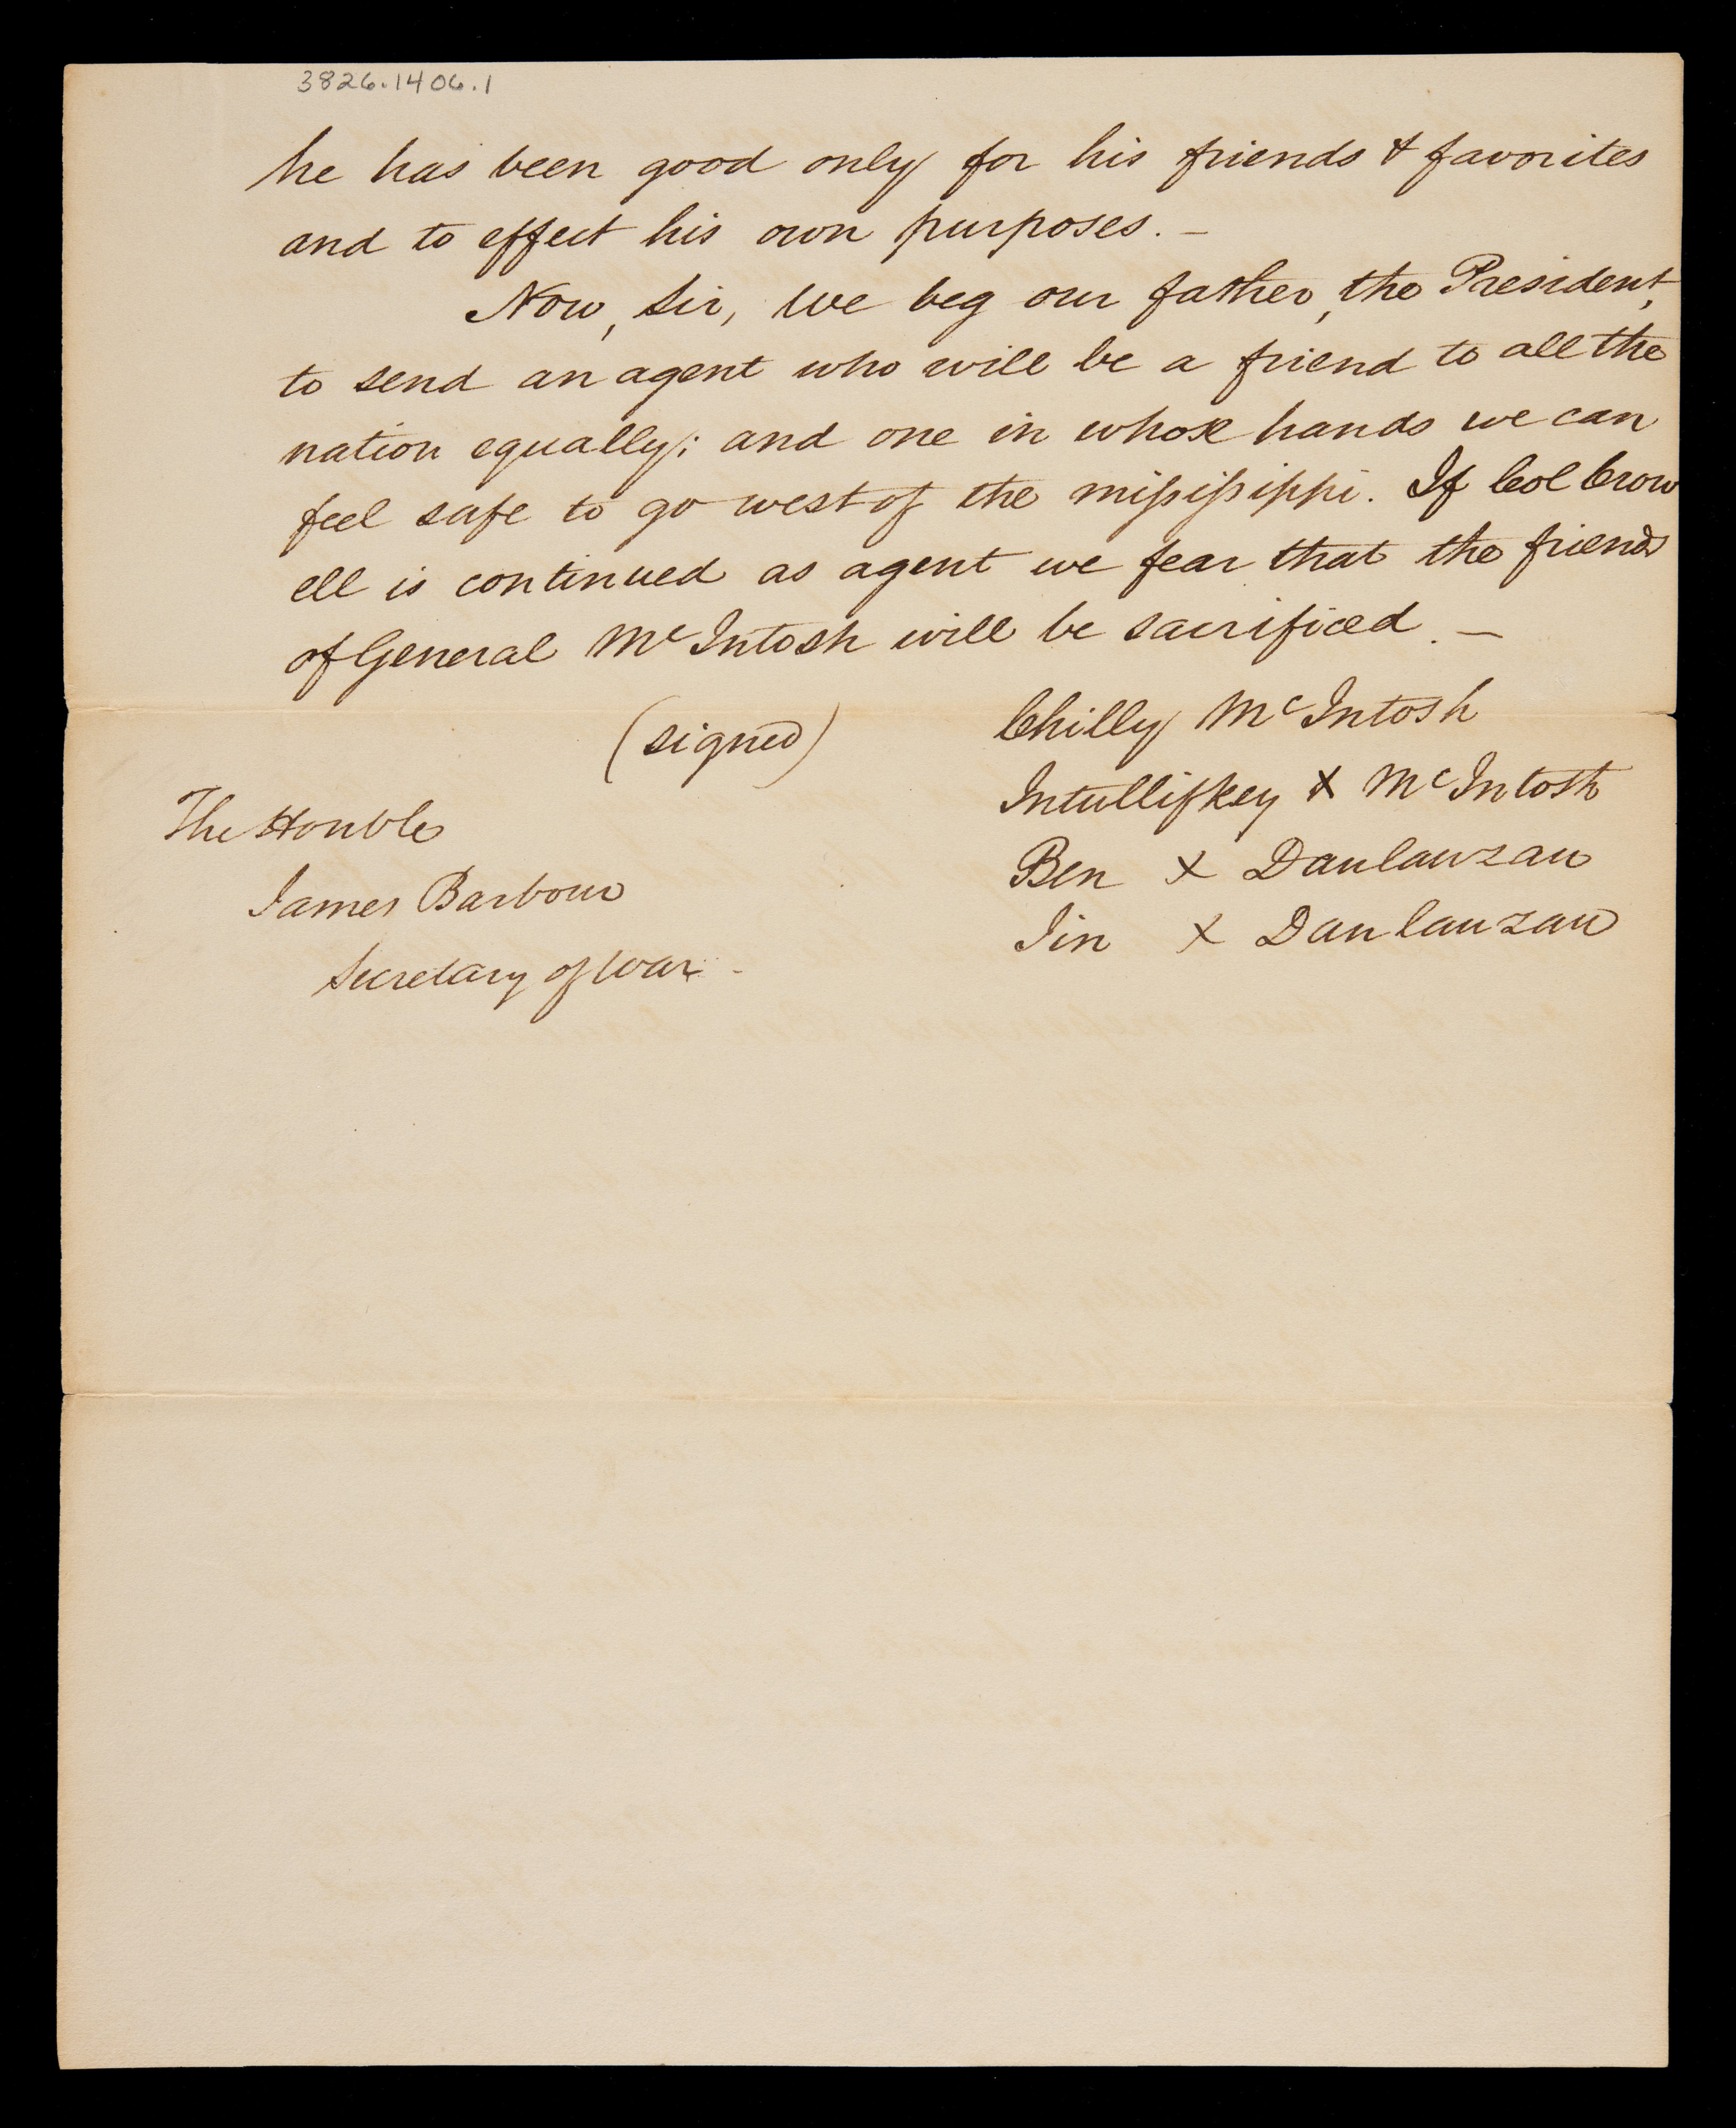 3826.1406.1
he has been good only for his friends & favorites
and to effect his own purposes. —
Now, Sir, We beg our father, the President,
to send an agent who will be a friend to all the
nation equally; and one in whose hands we can
feel safe to go west of the missisippi. If Col Crow
ell is continued as agent we fear that the friends
of General McIntosh will be sacrificed. —
(signed)
Chilly McIntosh
Intullisskey X McIntosh
Ben X Danlawzau
Jin X Danlauzau
The Honble
James Barbour
Secretary of War -